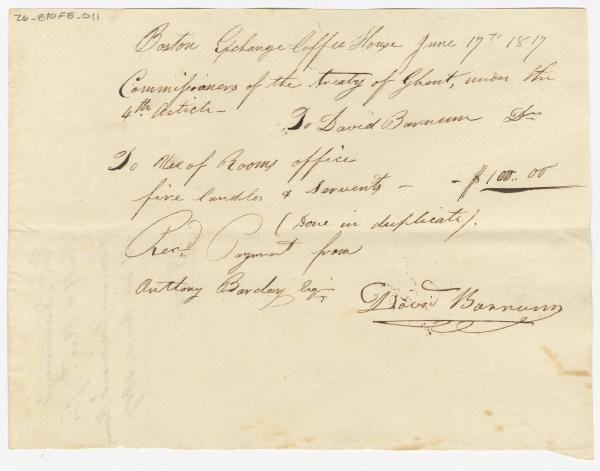 26-B10F5-011
Boston Exchange Coffee House June 17th 1817
Commissioners of the treaty of Ghent, under the
4th Article -
To David Barnum Dr
To Use of Rooms office
fire Candles & Servents - - $100.. 00
(Done in duplicate).
Recd. Payment from
Anthony Barclay Esqr
David Barnum